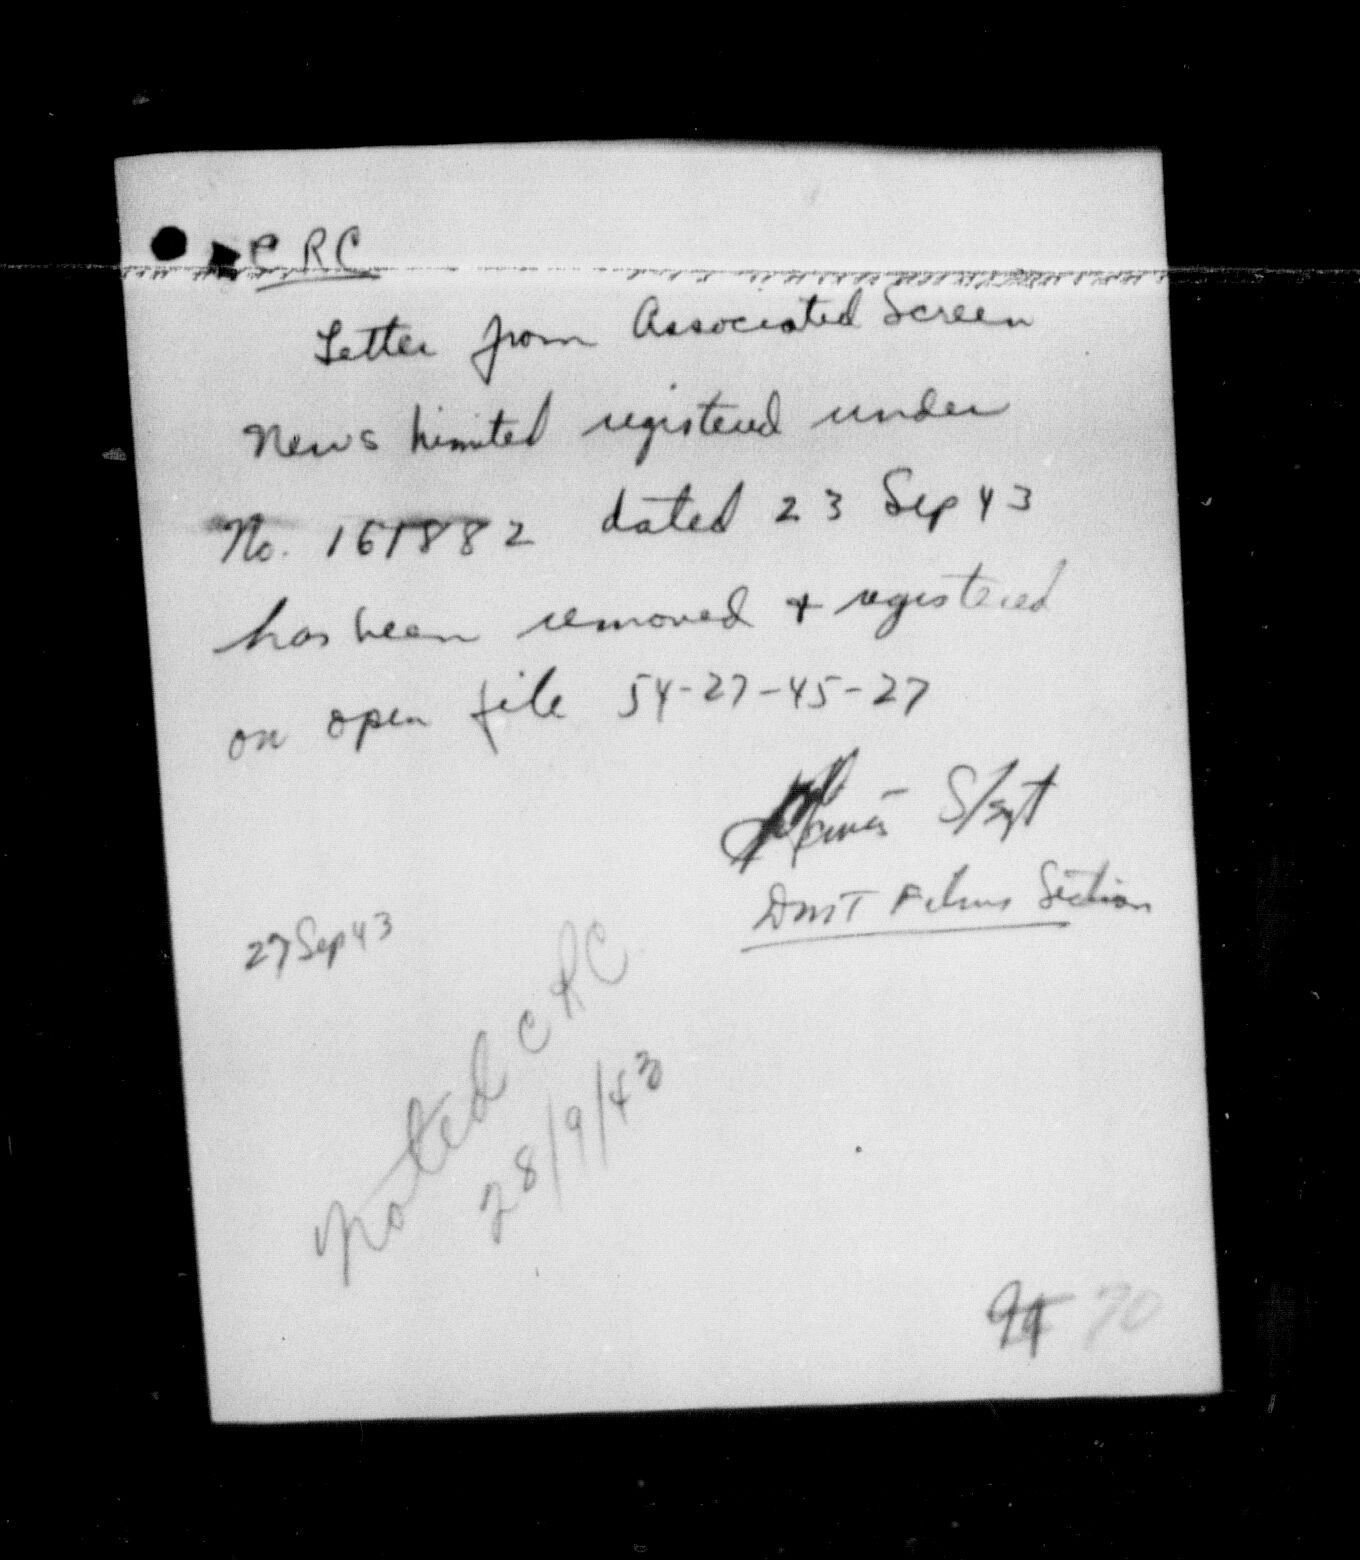 CRC
Letter from Associated Screen
News Limited registered under
No. 161882 dated 23 Sep 43
has been removed + registered
on open file 54-27-45-27
S/Sgt
DMT Films Section
27 Sep 43
Noted CRC
28/9/43
70